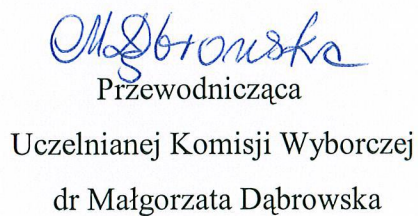 MDąbrowska
Przewodnicząca
Uczelnianej Komisji Wyborczej
dr Małgorzata Dąbrowska